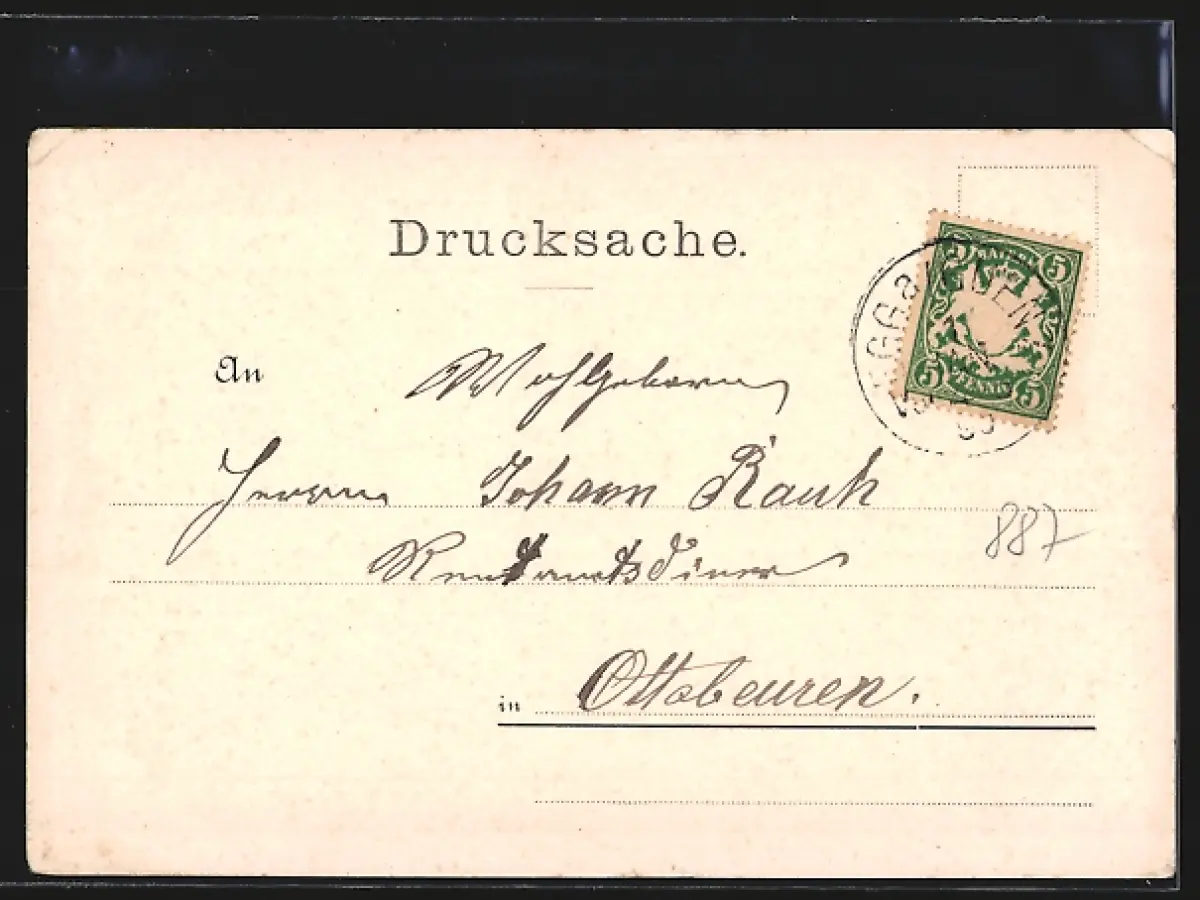 Drucksache.
5 BAYERN 5
5 PFENNIG 5
An Wohlgeboren
Herrn Johann Rauh
Rentamtsdiner
887
in Ottobeuren.